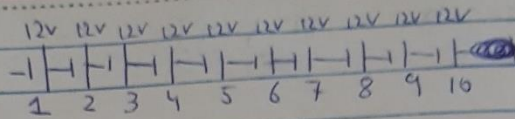 12V 12V 12V 12V 12V 12V 12V 12V 12V 12V
1 2 3 4 5 6 7 8 9 10